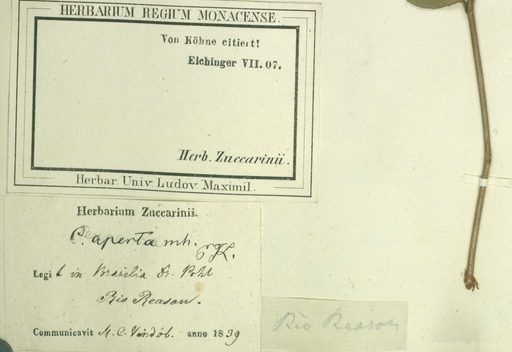 HERBARIUM REGIUM MONACENSE.
Von Köhne citiert!
Eichinger VII. 07.
Herb. Zuccarinii.
Herbar. Univ. Ludov. Maximil.
Herbarium Zuccarinii.
C. aperta mh.
K.
Legit in Brasilia Dr. Pohl
Rio Reason.
Communicavit M. C. Vindob. anno 1839
Rio Reason